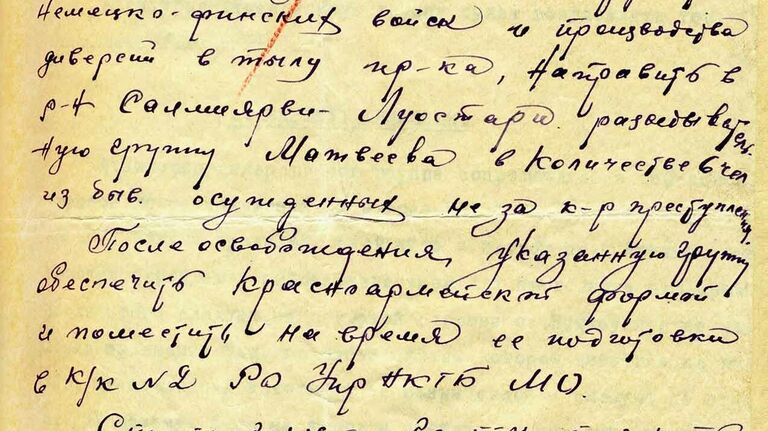 немецко-финских войск и производства
диверсий в тылу пр-ка, направить в
р-н Салмиярви-Луостари разведыватель-
ную группу Матвеева в количестве 6 чел
из быв. осужденных не за к-р преступления.
После освобождения, указанную группу
обеспечить красноармейской формой
и поместить на время ее подготовки
в к/к №2 РО Упр НКГБ МО.